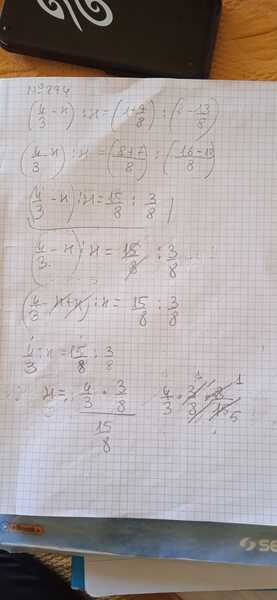 № 274
(4/3 - x) : x = (1+7/8) : (2-13/8)
(4/3 - x) : x = (8+7/8) : (16-13/8)
(4/3 - x) : x = 15/8 : 3/8
(4/3 - x) : x = 15/8 : 3/8
(4/3 - x+x) : x = 15/8 : 3/8
4/3 : x = 15/8 : 3/8
x = 4/3 · 3/8 / 15/8 4/3 · 3/8 · 8/15 1 1 5